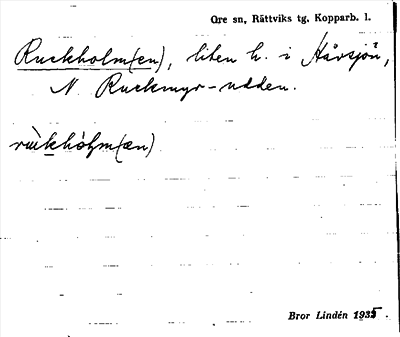 Ore sn, Rättviks tg, Kopparb. l.
Ruckholm(en), liten h. i Håvsjön,
N Ruckmyr-udden.
Bror Lindén 1935.